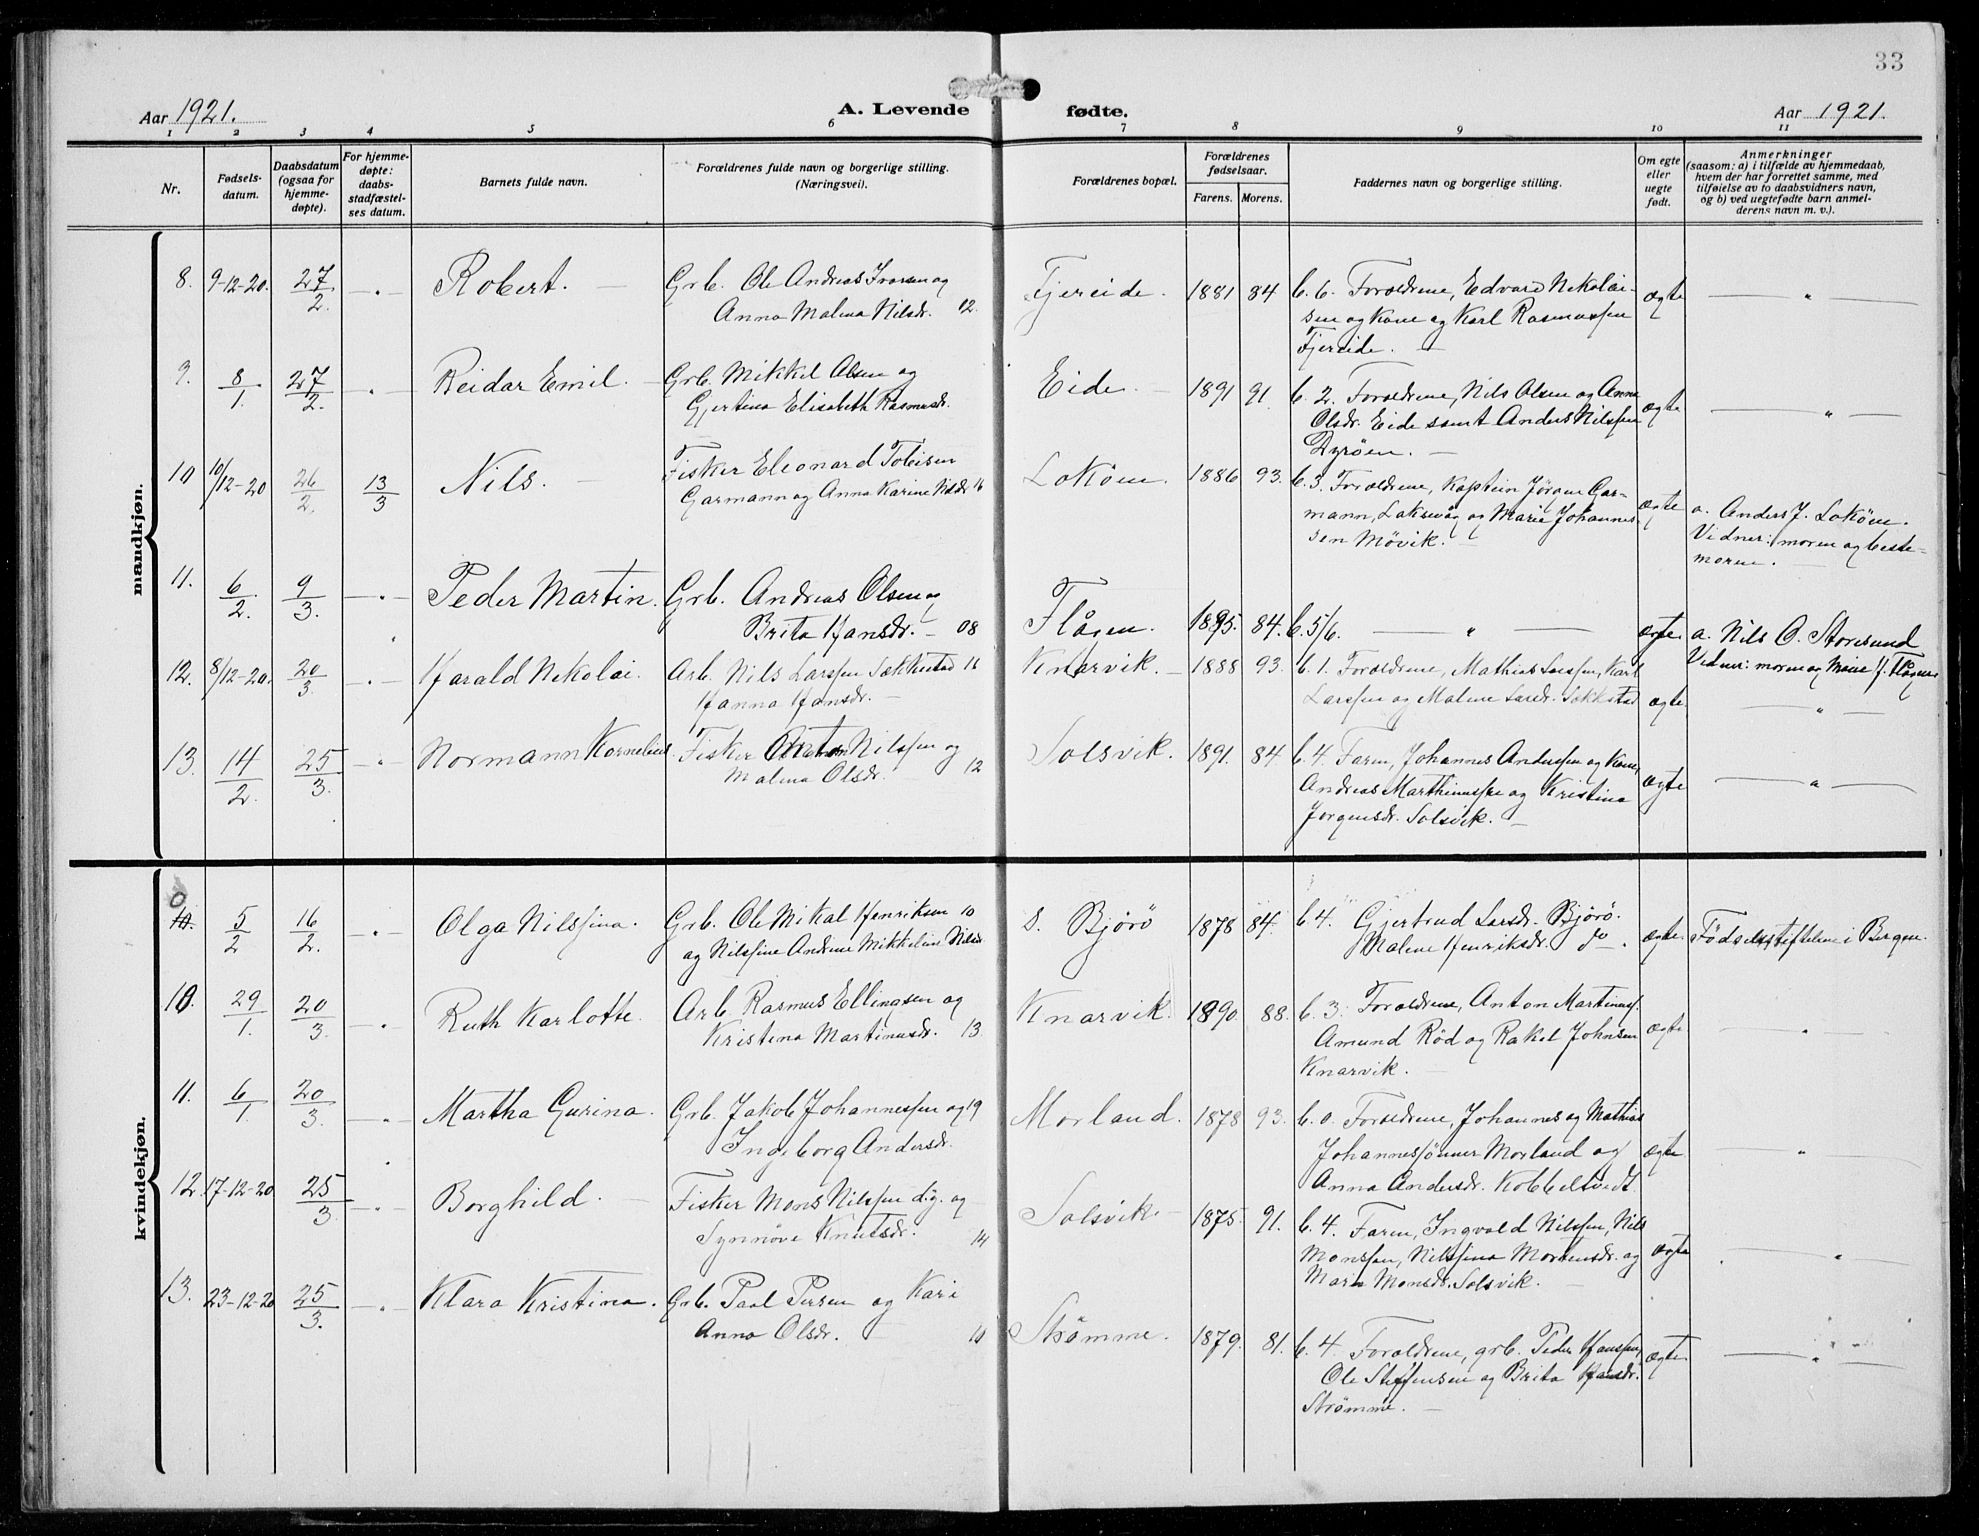 33
Aar 1921.
A. Levende fødte.
Aar 1921.
1 2 3 4 5 6 7 8 9 10 11
Nr.
Fødsels-
datum.
Daabsdatum
(ogsaa for
hjemme-
døpte).
For hjemme-
døpte:
daabs-
stadfæstel-
ses datum.
Barnets fulde navn.
Forældrenes fulde navn og borgerlige stilling.
(Næringsvei).
Forældrenes bopæl.
Forældrenes
fødselsaar.
Farens. Morens.
Faddernes navn og borgerlige stilling.
Om egte
eller
uegte
født.
Anmerkninger
(saasom: a) i tilfælde av hjemmedaab,
hvem der har forrettet samme, med
tilføielse av to daabsvidners navn,
og b) ved uegtefødte barn anmel-
derens navn m. v.).
mandkjøn.
8. 9-12-20. 27/2. — " — Robert. — Grb. Ole Andreas Ivarsen og
Anna Malena Nilsdr. 12.
Fjereide. 1881 84 b. 6. Forældrene, Edvard Nikolai-
sen og Kone og Karl Rasmussen
Fjereide. —
ægte — " —
9. 8/1 27/2. — " — Reidar Emil. — Grb. Mikkel Olsen og
Gjertina Elisabeth Rasmusdr.
Eide. — 1891 91. b. 2. Forældrene, Nils Olsen og Anna
Olsdr. Eide samt Anders Nilssen
Dyrøen. —
ægte — " —
10 10/12-20 26/2. 13/3 Nils. — Fisker Eleonard Tobisen
Garmann og Anna Karine Nilsdr 16
Lokøen. 1886 93. b. 3. Forældrene, Kaptein Jørgen Gar-
mann, Laksevåg og Marie Johannes-
sen Møvik. —
ægte a. Anders J. Lokøen.
Vidner: moren og beste-
moren. —
11. 6/2. 9/3. — " — Peder Martin. Grb. Andreas Olsen og
Brita Hansdr. — 08
Flågen. 1895. 84. b. 5/6. — " —
ægte a. Nils O. Storesund
Vidner: moren og Marie J. Flågen
12. 8/12-20. 20/3 — " — Harald Nikolai. Arb. Nils Larssen Sækkestad 16
Hanna Hansdr. —
Knarvik. — 1888 93. b. 1. Forældrene, Mathias Larssen, Karl
Larssen og Malene Larsdr. Sækkestad
ægte — " —
13. 14/2. 25/3. — " — Normann Kornelius Fisker Anton Nilssen og
Malena Olsdr. 12
Solsvik. 1891. 84 b. 4. Faren, Johannes Anderssen og Kone,
Andreas Marthinussen og Kristina
Jørgensdr. Solsvik. —
ægte — " —
kvindekjøn.
0 5/2 16/2. — " — Olga Nilssina. Grb. Ole Mikal Henriksen 10
og Nilssine Andrine Mikkeline Nilsdr
S. Bjørø 1878 84. b. 4. Gjertrud Larsdr. Bjørø.
Malene Henriksdr. do.
ægte. Fødselsstiftelsen i Bergen.
10. 29/1. 20/3 — " — Ruth Karlotte. Arb. Rasmus Ellingsen og
Kristina Martinusdr. 13
Knarvik. 1890. 88. b. 3. Forældrene, Anton Martinuss.
Amund Rød og Rakel Johnsen
Knarvik. —
ægte — " —
11. 6/1 20/3. — " — Martha Gurina. Grb. Jakob Johannessen og 19
Ingeborg Andersdr.
Morland. 1878 93. b. 0. Forældrene, Johannes og Mathias
Johannessønner Morland og
Anna Andersdr. Kobbeltvedt.
ægte — " —
12. 17-12-20 25/3. — " — Borghild. — Fisker Mons Nilssen dig. og
Synnøve Knutsdr. 14
Solsvik. — 1875. 91. b. 4. Faren, Ingvald Nilssen, Nils
Monssen, Nilssina Mortensdr. og
Mari Monsdr. Solsvik. —
ægte — " —
13. 23-12-20 25/3. — " — Klara Kristina. Grb. Paal Persen og Kari
Anna Olsdr. — 10
Strømme. 1879. 81. b. 4. Forældrene, grb. Peder Hanssen,
Ole Steffensen og Brita Hansdr.
Strømme. —
ægte — " —